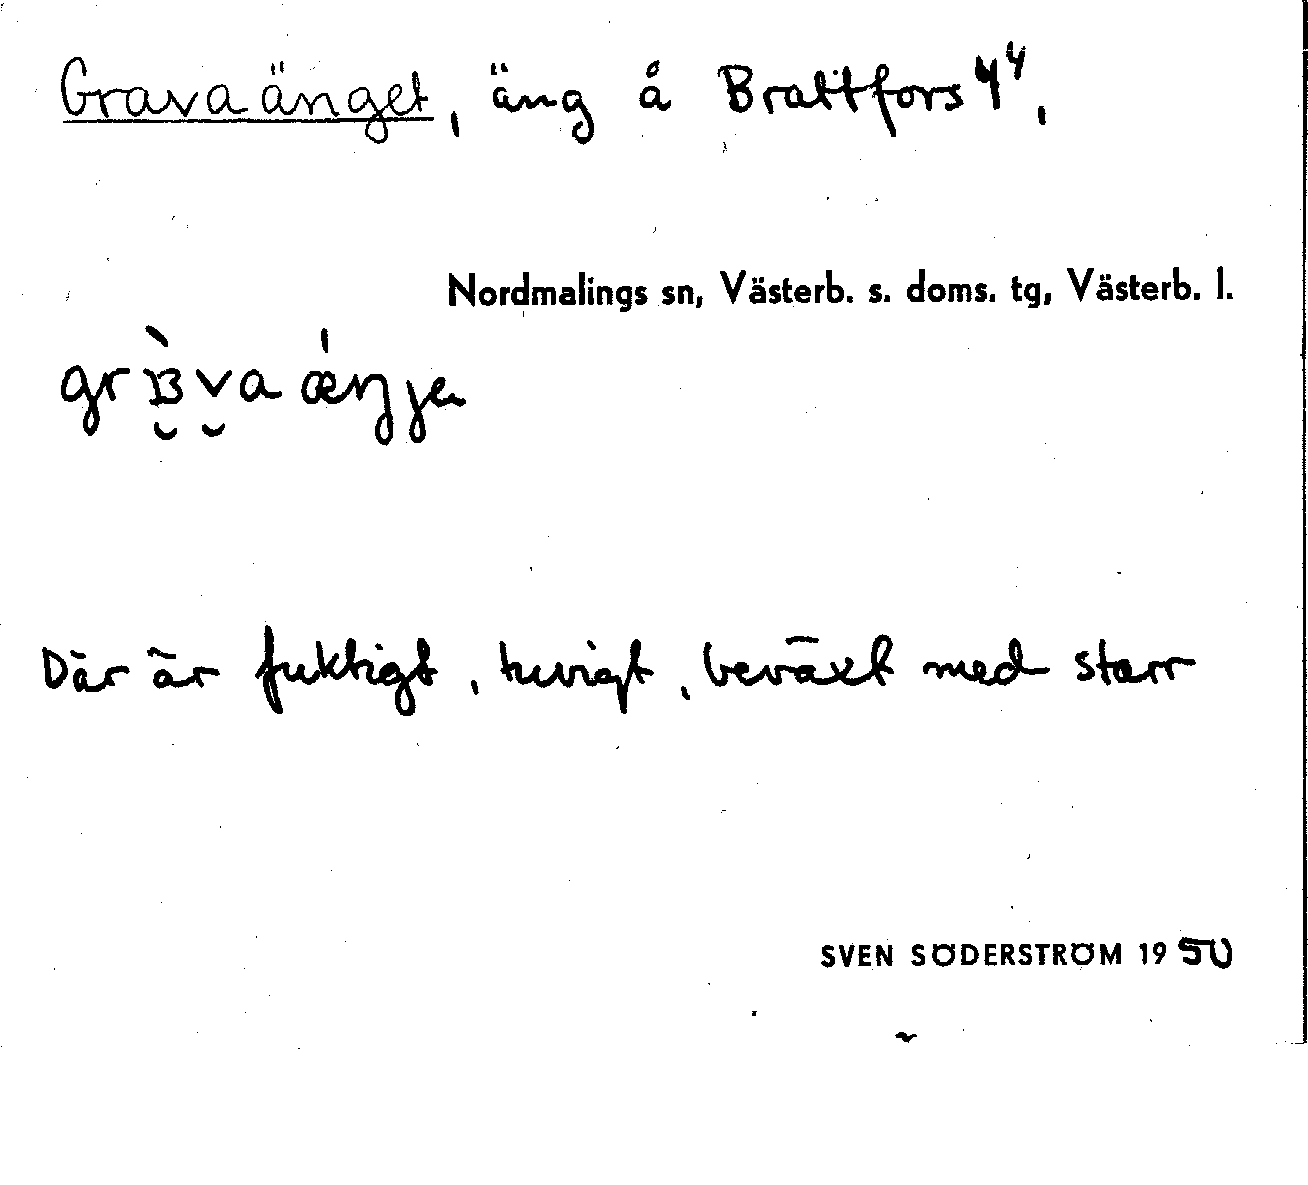 Gravaänget, äng å Brattfors 4⁴,
Nordmalings sn, Västerb. s. doms. tg, Västerb. l.
Där är fuktigt, tuvigt, beväxt med starr
SVEN SÖDERSTRÖM 1950